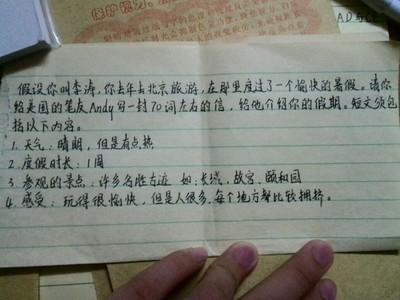 保护视力
AD
假设你叫李涛,你去年去北京旅游,在那里度过了一个愉快的暑假。请你
给美国的笔友Andy写一封70词左右的信,给他介绍你的假期。短文须包
括以下内容。
1. 天气:晴朗,但是有点热
2. 度假时长:1周
3. 参观的景点:许多名胜古迹 如:长城,故宫,颐和园
4. 感受:玩得很愉快,但是人很多,每个地方都比较拥挤。